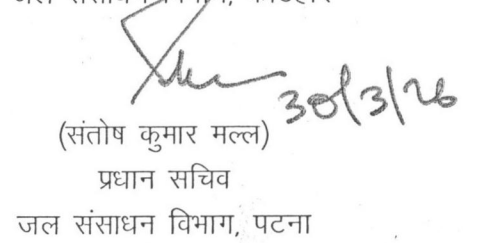 30/3/26
(संतोष कुमार मल्ल)
प्रधान सचिव
जल संसाधन विभाग, पटना